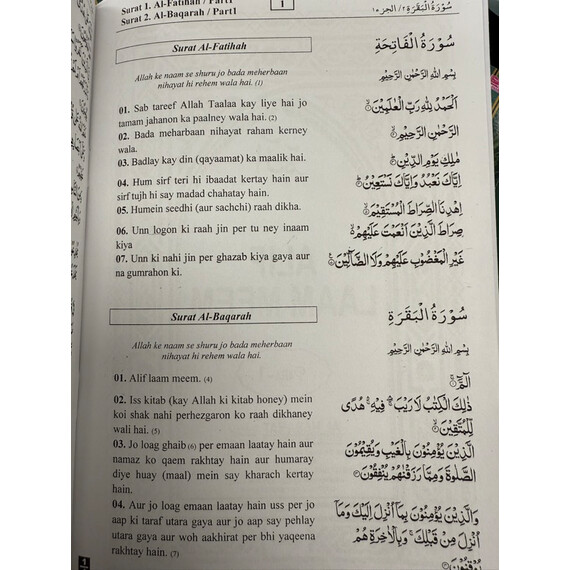 Surat 1. Al-Fatihah / Part1
Surat 2. Al-Baqarah / Part1
1
سُوْرَةُ الْبَقَرَةِ ٢ / الجزء ١
Surat Al-Fatihah
سُوْرَةُ الْفَاتِحَةِ
Allah ke naam se shuru jo bada meherbaan
nihayat hi rehem wala hai. (1)
بِسْمِ اللّٰهِ الرَّحْمٰنِ الرَّحِيْمِ
01. Sab tareef Allah Taalaa kay liye hai jo
tamam jahanon ka paalney wala hai. (2)
اَلْحَمْدُ لِلّٰهِ رَبِّ الْعٰلَمِيْنَ ۝١
02. Bada meharbaan nihayat raham kerney
wala.
الرَّحْمٰنِ الرَّحِيْمِ ۝٢
03. Badlay kay din (qayaamat) ka maalik hai.
مٰلِكِ يَوْمِ الدِّيْنِ ۝٣
04. Hum sirf teri hi ibaadat kertay hain aur
sirf tujh hi say madad chahatay hain.
اِيَّاكَ نَعْبُدُ وَاِيَّاكَ نَسْتَعِيْنُ ۝٤
05. Humein seedhi (aur sachchi) raah dikha.
اِهْدِنَا الصِّرَاطَ الْمُسْتَقِيْمَ ۝٥
06. Unn logon ki raah jin per tu ney inaam
kiya
صِرَاطَ الَّذِيْنَ اَنْعَمْتَ عَلَيْهِمْ ۝٦
07. Unn ki nahi jin per ghazab kiya gaya aur
na gumrahon ki.
غَيْرِ الْمَغْضُوْبِ عَلَيْهِمْ وَلَا الضَّآلِّيْنَ ۝٧
Surat Al-Baqarah
سُوْرَةُ الْبَقَرَةِ
Allah ke naam se shuru jo bada meherbaan
nihayat hi rehem wala hai.
بِسْمِ اللّٰهِ الرَّحْمٰنِ الرَّحِيْمِ
01. Alif laam meem. (4)
الٓمّٓ ۝١
02. Iss kitab (kay Allah ki kitab honey) mein
koi shak nahi perhezgaron ko raah dikhaney
wali hai. (5)
ذٰلِكَ الْكِتٰبُ لَا رَيْبَ ۛ فِيْهِ ۛ هُدًى
لِّلْمُتَّقِيْنَ ۝٢
03. Jo loag ghaib (6) per emaan laatay hain aur
namaz ko qaem rakhtay hain aur humaray
diye huay (maal) mein say kharach kertay
hain.
الَّذِيْنَ يُؤْمِنُوْنَ بِالْغَيْبِ وَيُقِيْمُوْنَ
الصَّلٰوةَ وَمِمَّا رَزَقْنٰهُمْ يُنْفِقُوْنَ ۝٣
04. Aur jo loag emaan laatay hain uss per jo
aap ki taraf utara gaya aur jo aap say pehlay
utara gaya aur woh aakhirat per bhi yaqeena
rakhtay hain. (7)
وَالَّذِيْنَ يُؤْمِنُوْنَ بِمَآ اُنْزِلَ اِلَيْكَ وَمَآ
اُنْزِلَ مِنْ قَبْلِكَ ۚ وَبِالْاٰخِرَةِ هُمْ
يُوْقِنُوْنَ ۝٤
1